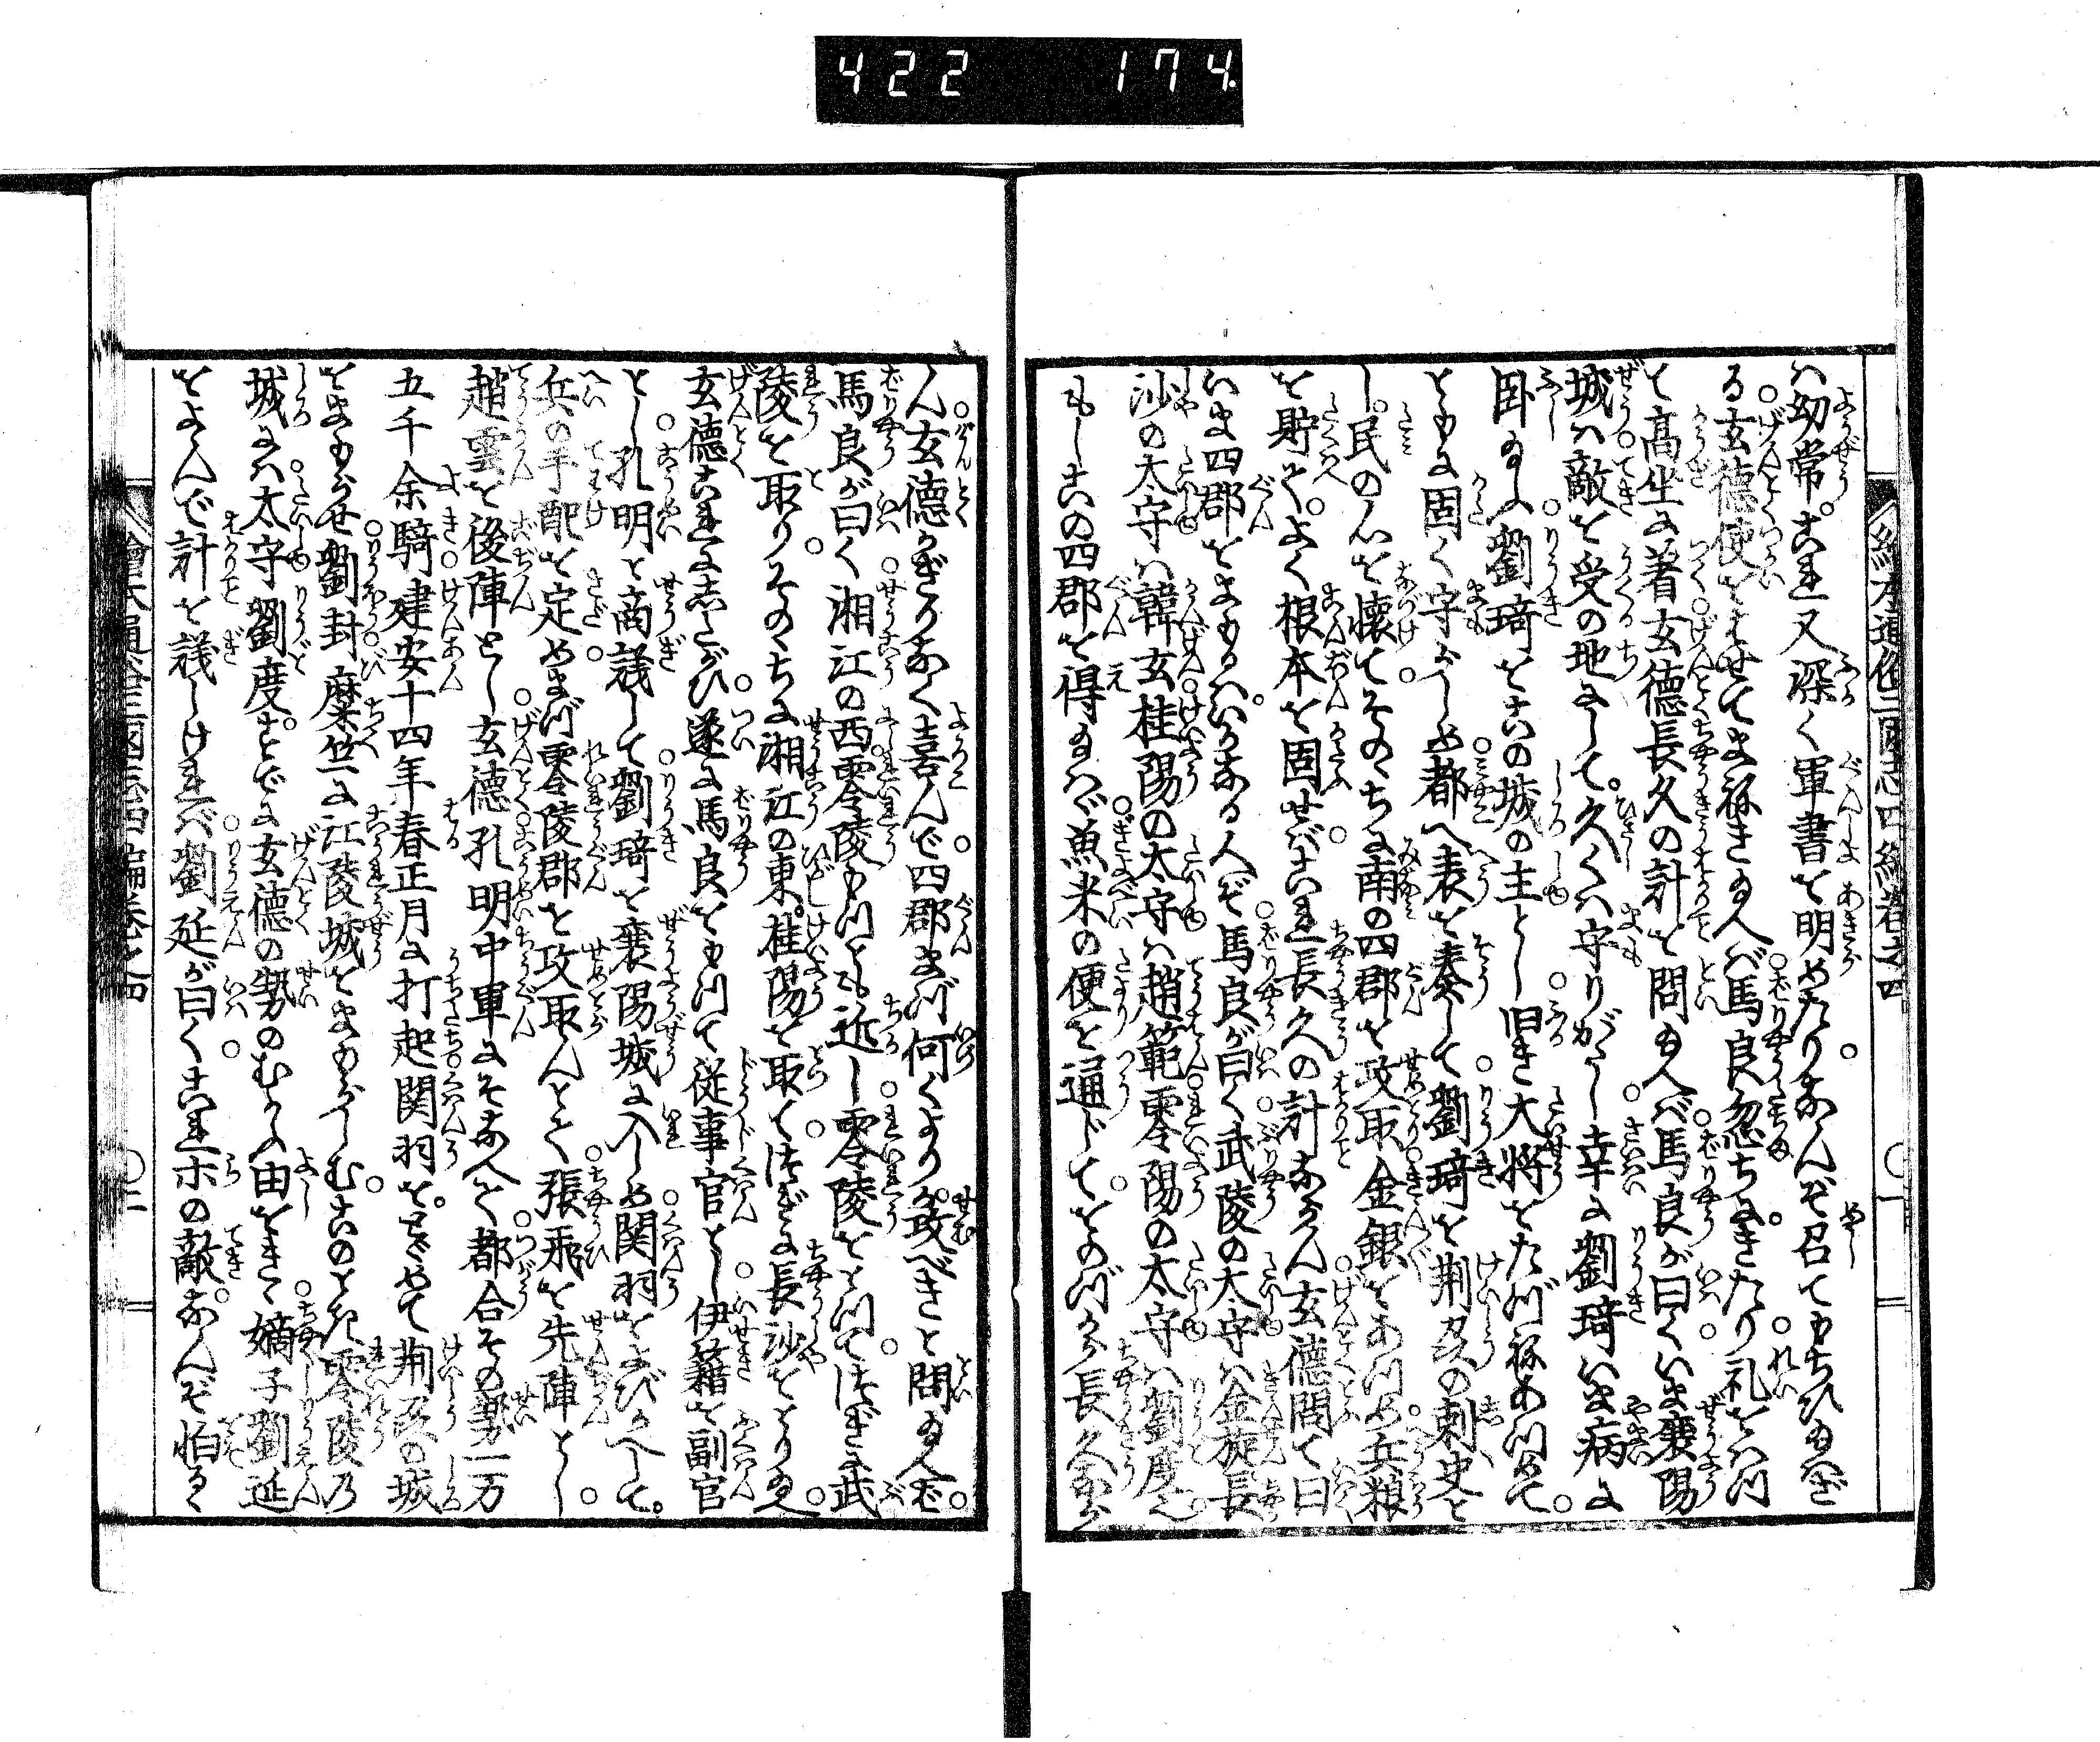 422 174.
繪本通俗三国志四編卷之四
ハ幼常。これ又深く軍書を明めたりなんぞ召てもちひ給はざ
る玄徳使をはせてまねき給へば馬良忽ちにきたり礼をハつ
て高坐に着玄徳長久の計を問給へば馬良が曰くいま襄陽
城ハ敵を受の地にして。久くハ守りがたし幸に劉琦いま病に
臥給ふ劉琦をこの城の主とし旧き大将をたづねあつめて
ともに固く守がしめ都へ表を奏して劉琦を荊州の刺史と
し。民の心を懐てそのゝちに南の四郡を攻取金銀をあつめ兵粮
を貯て。よく根本を固せばこれ長久の計ならん玄徳問て曰
いま四郡をまもるハ。いかなる人ぞ馬良が曰く武陵の太守ハ金旋長
沙の太守ハ韓玄桂陽の太守ハ趙範零陽の太守ハ劉度也
もしこの四郡を得給はゞ魚米の便を通じてをのづから長久ならん
ん玄徳かぎりなく喜んで四郡まづ何くより攻べきと問給へば
馬良が曰く湘江の西零陵もつとも近し零陵をとつてつぎに武
陵を取りそのゝちに湘江の東。桂陽を取てつぎに長沙をとり給へ
玄徳これにしたがひ遂に馬良をもつて従事官とし伊籍を副官
とし孔明と商議して劉琦を襄陽城に入しめ関羽をよびかへして。
兵の手配を定めまづ零陵郡を攻取んとて張飛を先陣とし
趙雲を後陣とし玄徳孔明中軍にそなへて都合その勢一万
五千余騎建安十四年春正月に打起関羽をとゞめて荊州の城
をまもらせ劉封糜竺に江陵城をまもらしむこのとき零陵乃
城にハ太守劉度。すでに玄徳の勢のむかふ由をきゝ嫡子劉延
をよんで計を議しければ劉延が曰くこれホの敵。なんぞ怕るゝ
繪本通俗三國志四編卷之四